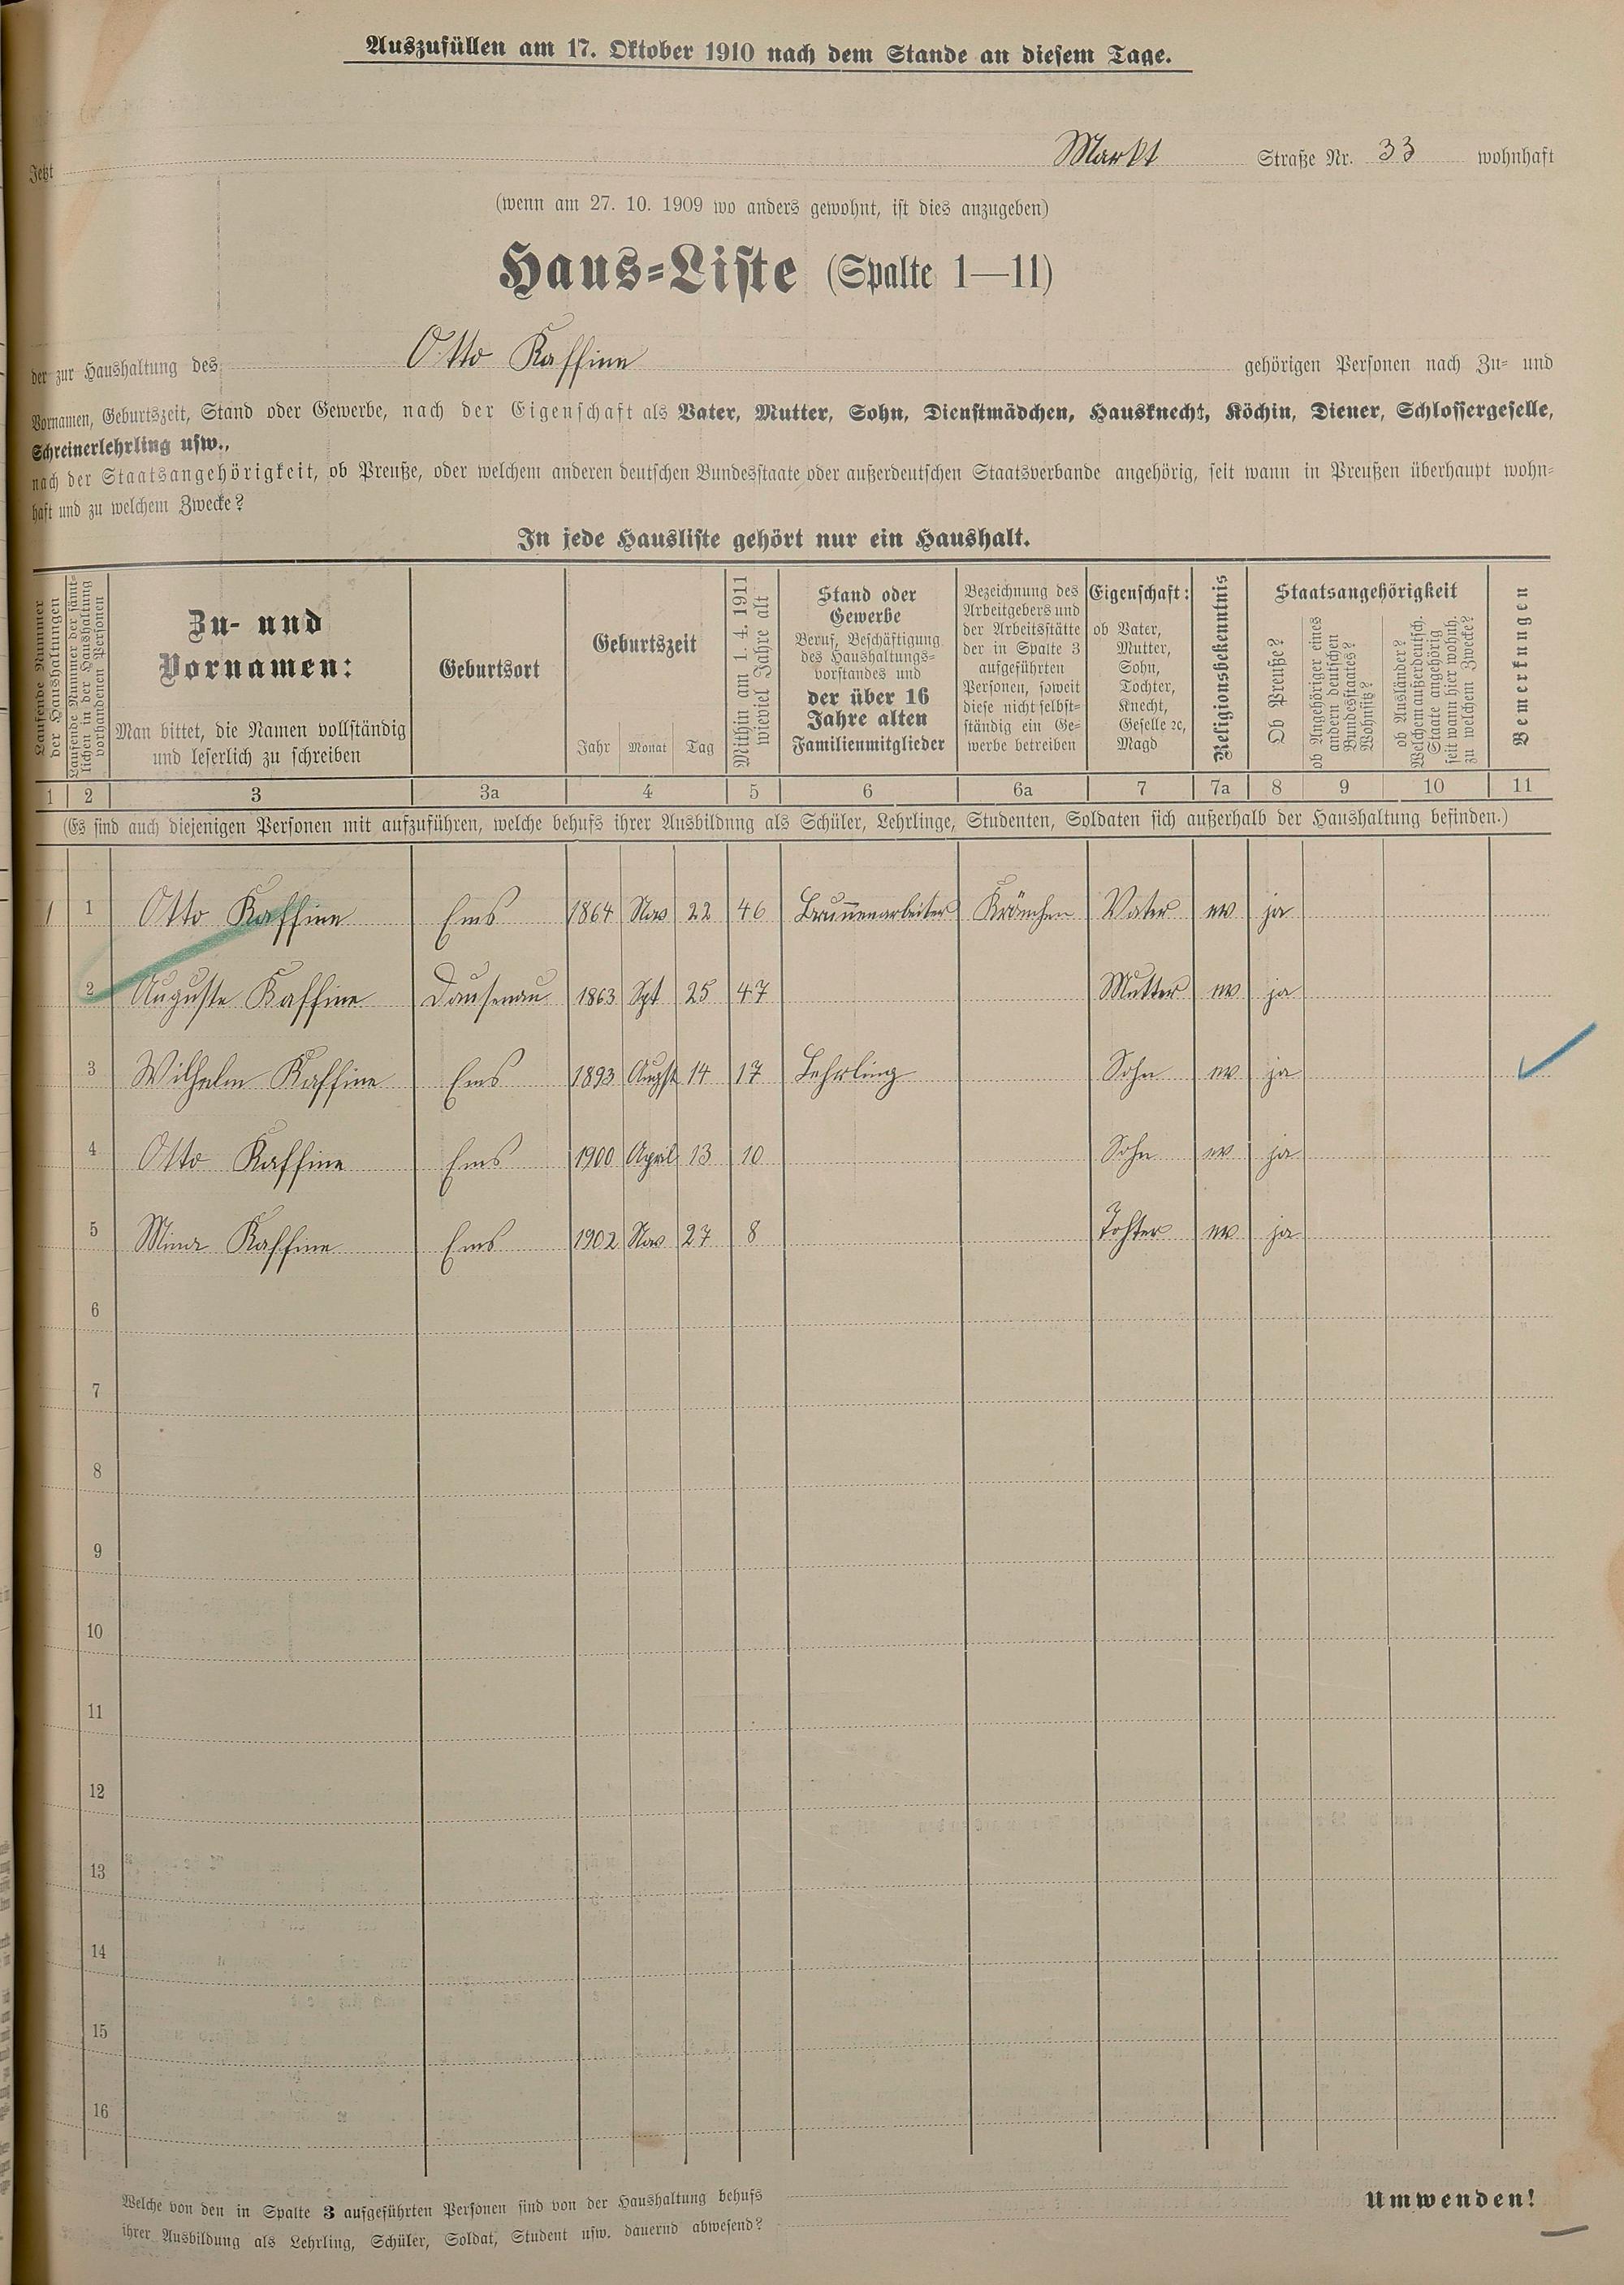 Auszufüllen am 17. Oktober 1910 nach dem Stande an diesem Tage.
Jetzt Markt Straße Nr. 33 wohnhaft
(wenn am 27. 10. 1909 wo anders gewohnt, ist dies anzugeben)
Haus-Liste (Spalte 1—11)
der zur Haushaltung des Otto Kaffine gehörigen Personen nach Zu- und
Vornamen, Geburtszeit, Stand oder Gewerbe, nach der Eigenschaft als Vater, Mutter, Sohn, Dienstmädchen, Hausknecht, Köchin, Diener, Schlossergeselle,
Schreinerlehrling usw.,
nach der Staatsangehörigkeit, ob Preuße, oder welchem anderen deutschen Bundesstaate oder außerdeutschen Staatsverbande angehörig, seit wann in Preußen überhaupt wohn-
haft und zu welchem Zwecke?
In jede Hausliste gehört nur ein Haushalt.
Laufende Nummer
der Haushaltungen
Laufende Nummer der sämt-
lichen in der Haushaltung
vorhandenen Personen
Zu- und
Vornamen:
Man bittet, die Namen vollständig
und leserlich zu schreiben
Geburtsort
Geburtszeit
Jahr Monat Tag
Mithin am 1. 4. 1911
wieviel Jahre alt
Stand oder
Gewerbe
Beruf, Beschäftigung
des Haushaltungs-
vorstandes und
der über 16
Jahre alten
Familienmitglieder
Bezeichnung des
Arbeitgebers und
der Arbeitsstätte
der in Spalte 3
aufgeführten
Personen, soweit
diese nicht selbst-
ständig ein Ge-
werbe betreiben
Eigenschaft:
ob Vater,
Mutter,
Sohn,
Tochter,
Knecht,
Geselle ꝛc,
Magd
Religionsbekenntnis
Staatsangehörigkeit
Ob Preuße?
ob Angehöriger eines
andern deutschen
Bundesstaates?
Wohnsitz?
ob Ausländer?
Welchem außerdeutsch.
Staate angehörig
seit wann hier wohnh.
zu welchem Zwecke?
Bemerkungen
1 2 3 3a 4 5 6 6a 7 7a 8 9 10 11
(Es sind auch diejenigen Personen mit aufzuführen, welche behufs ihrer Ausbildung als Schüler, Lehrlinge, Studenten, Soldaten sich außerhalb der Haushaltung befinden.)
1 1 Otto Kaffine Ems 1864 Nov 22 46 Brunnenarbeiter Kränchen Vater ev ja
2 Auguste Kaffine Dausenau 1863 Spt 25 47 Mutter ev ja
3 Wilhelm Kaffine Ems 1893 Augst 14 17 Lehrling Sohn ev ja
4 Otto Kaffine Ems 1900 April 13 10 Sohn ev ja
5 Mina Kaffine Ems 1902 Nov 27 8 Tohter ev ja
6
7
8
9
10
11
12
13
14
15
16
Welche von den in Spalte 3 aufgeführten Personen sind von der Haushaltung behufs
ihrer Ausbildung als Lehrling, Schüler, Soldat, Student usw. dauernd abwesend?
Umwenden!